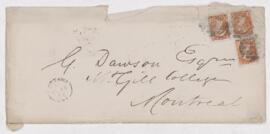 G. Dawson Esqre
McGill College
Montreal